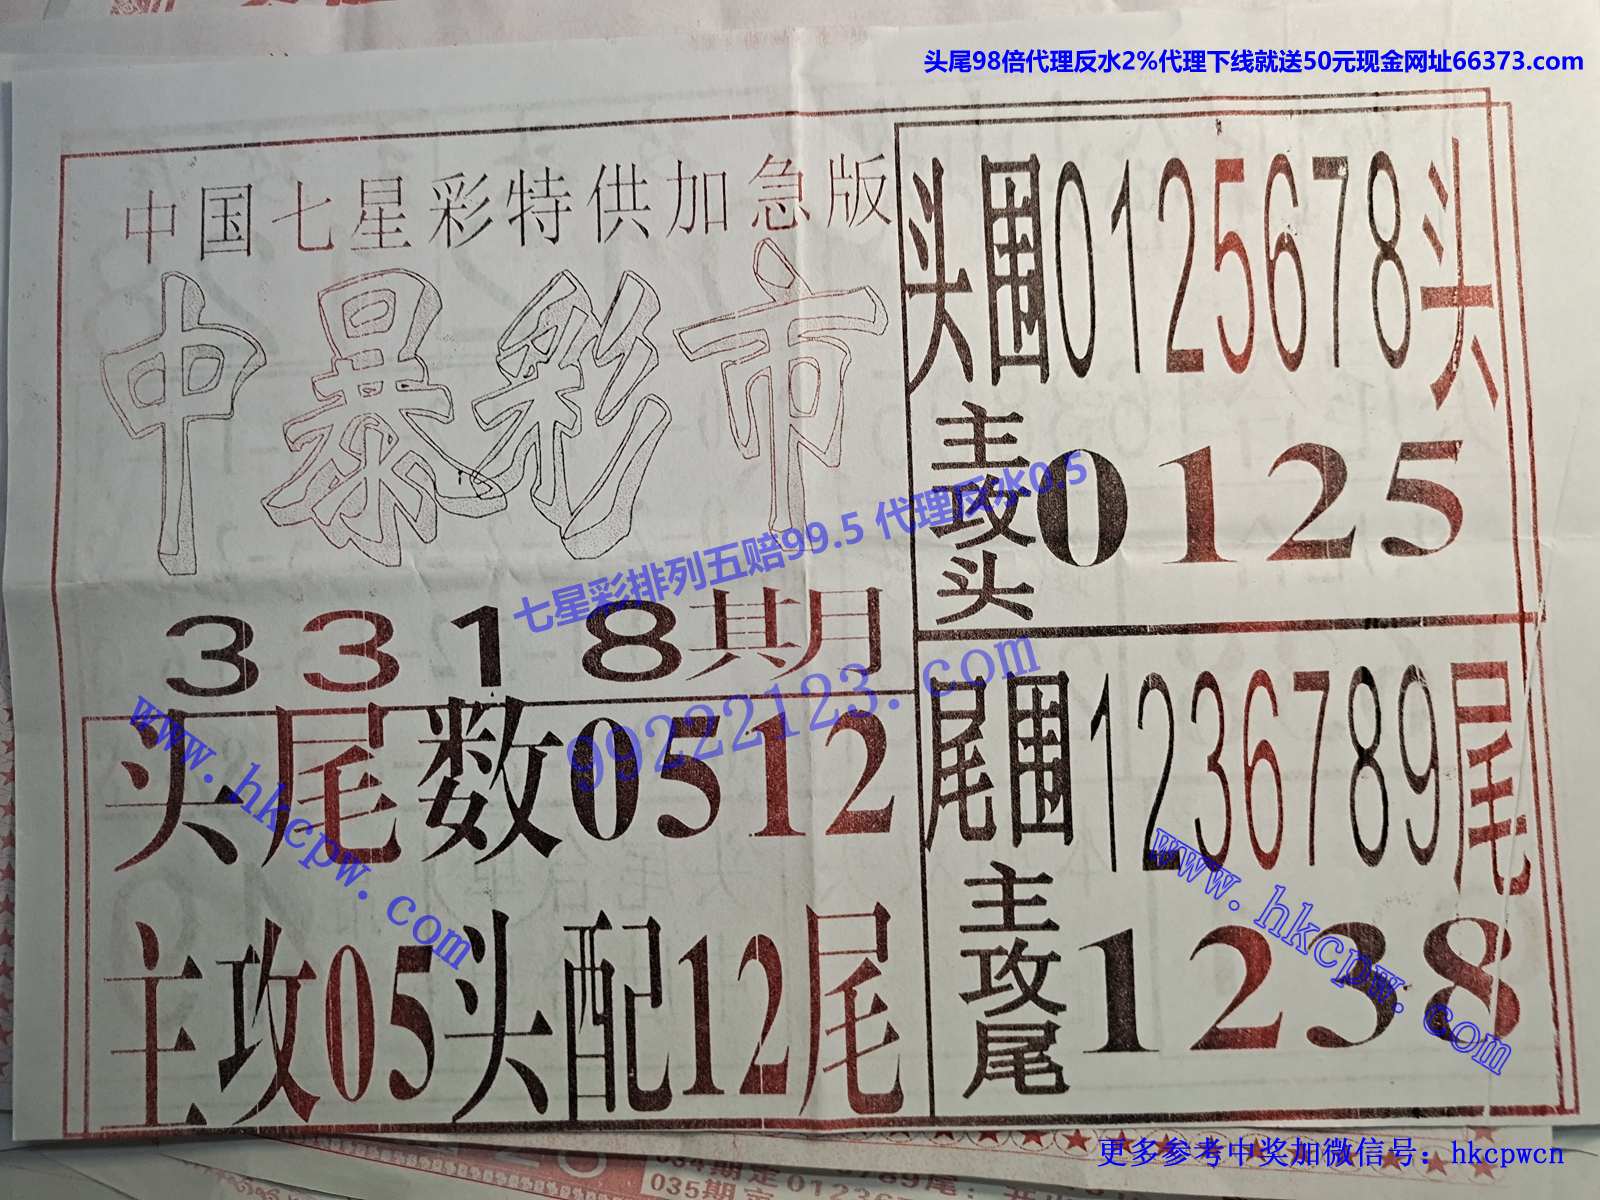 头尾98倍代理反水2%代理下线就送50元现金网址66373.com
中国七星彩特供加急版
中暴彩市
3318其月
头尾数0512
主攻05头配12尾
头围0125678头
主攻头0125
尾围1236789尾
主攻尾1238
七星彩排列五赔99.5 代理反水0.5
99222123.com
www.hkcpw.com
www.hkcpw.com
更多参考中奖加微信号：hkcpwcn
035期定